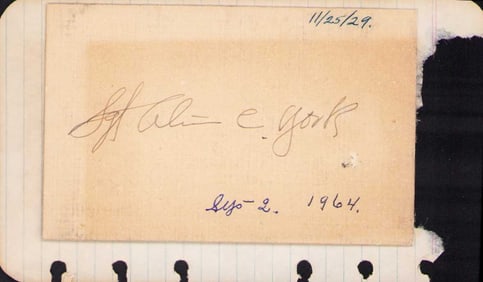 11/25/29.
Sgt Alvin C. York
Sep 2. 1964.